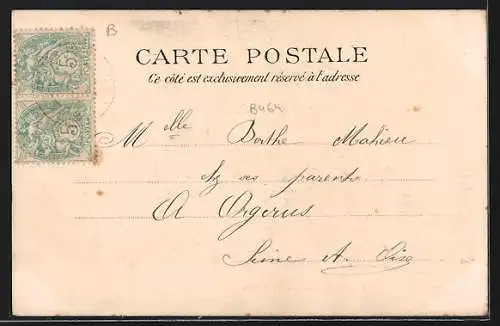 B
CARTE POSTALE
Ce côté est exclusivement réservé à l'adresse
B464
Mlle Berthe Mahieu
chz ses parents
A Orgerus
Seine & Oise
5
5